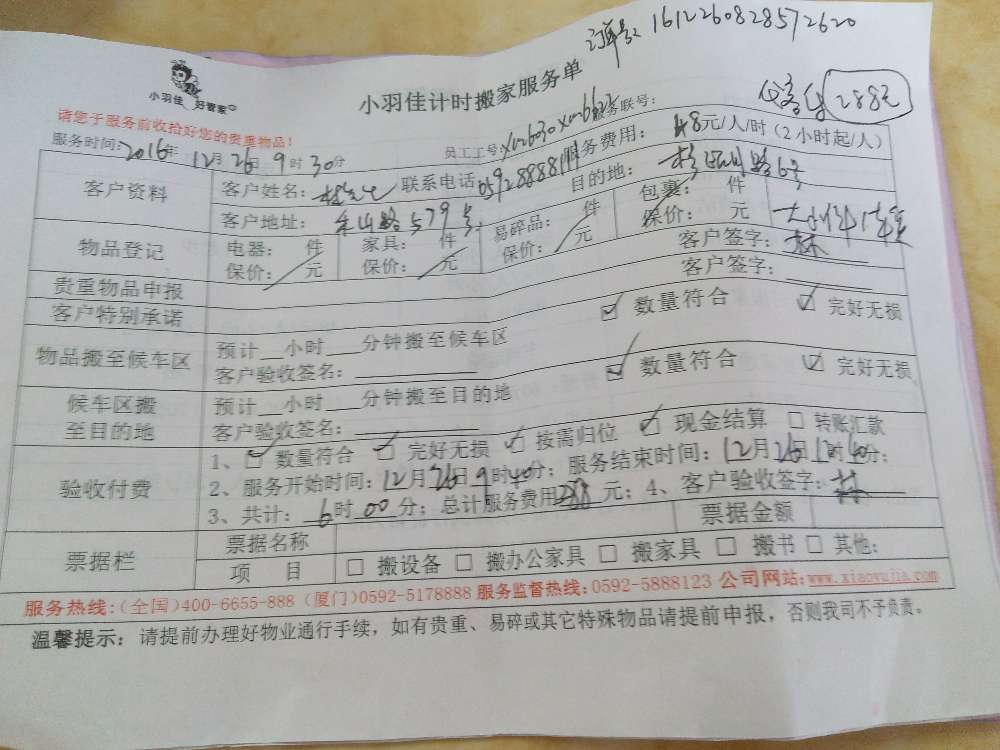 订单号: 1612260828572620
小羽佳 好管家
小羽佳计时搬家服务单
288元
请您于服务前收拾好您的贵重物品!
服务时间: 2016年12月26日9时30分
员工工号: 服务联号:
服务费用: 48元/人/时(2小时起/人)
客户资料
客户姓名: 联系电话 目的地: 路6号
客户地址: 路579号
物品登记
电器: 件 家具: 件 易碎品: 件 包裹: 件
保价: 元 保价: 元 保价: 元 保价: 元
贵重物品申报 客户签字: 林
客户特别承诺 客户签字:
物品搬至候车区
预计__小时___分钟搬至候车区 数量符合 完好无损
客户验收签名:
候车区搬至目的地
预计__小时___分钟搬至目的地 数量符合 完好无损
客户验收签名:
验收付费
1、数量符合 完好无损 按需归位 现金结算 转账汇款
2、服务开始时间: 12月26日9时40分; 服务结束时间: 12月26日 时40分;
3、共计: 6时00分; 总计服务费用288元; 4、客户验收签字: 林
票据栏
票据名称 票据金额
项 目 搬设备 搬办公家具 搬家具 搬书 其他:
服务热线:(全国)400-6655-888 (厦门)0592-5178888 服务监督热线: 0592-5888123 公司网站: www.xiaoyujia.com
温馨提示: 请提前办理好物业通行手续, 如有贵重、易碎或其它特殊物品请提前申报, 否则我司不予负责。